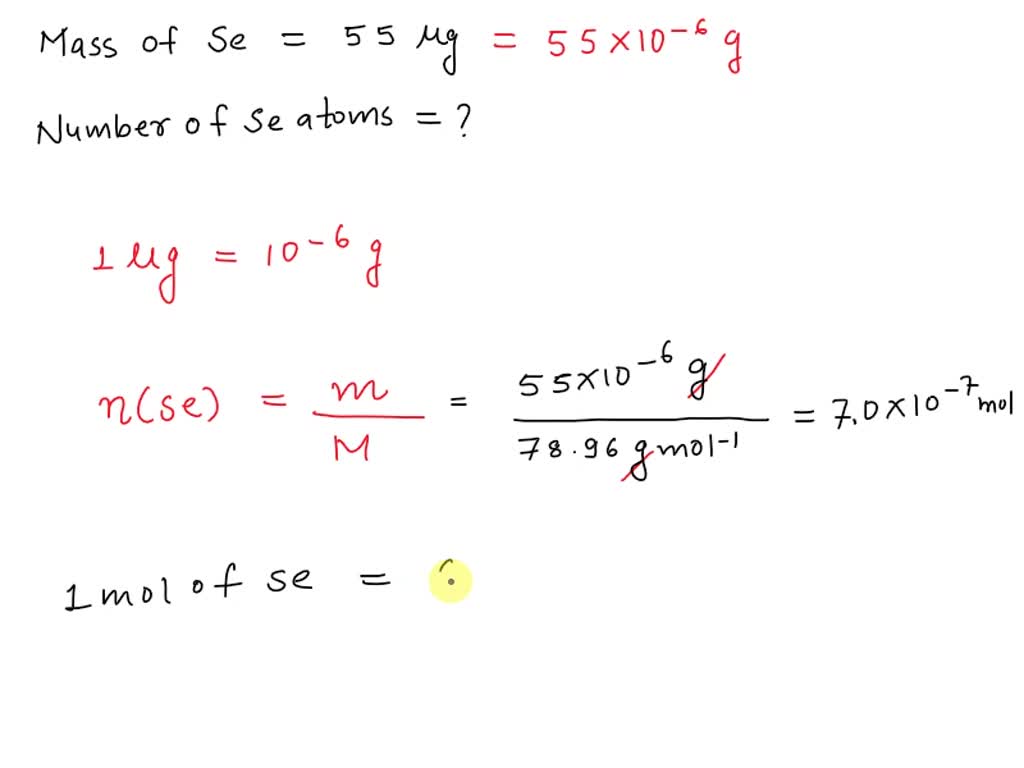 Mass of Se = 55 μg = 55×10⁻⁶ g
Number of Se atoms = ?
1 μg = 10⁻⁶ g
n(se) = m/M = 55×10⁻⁶ g / 78.96 g mol⁻¹ = 7.0×10⁻⁷ mol
1 mol of se =